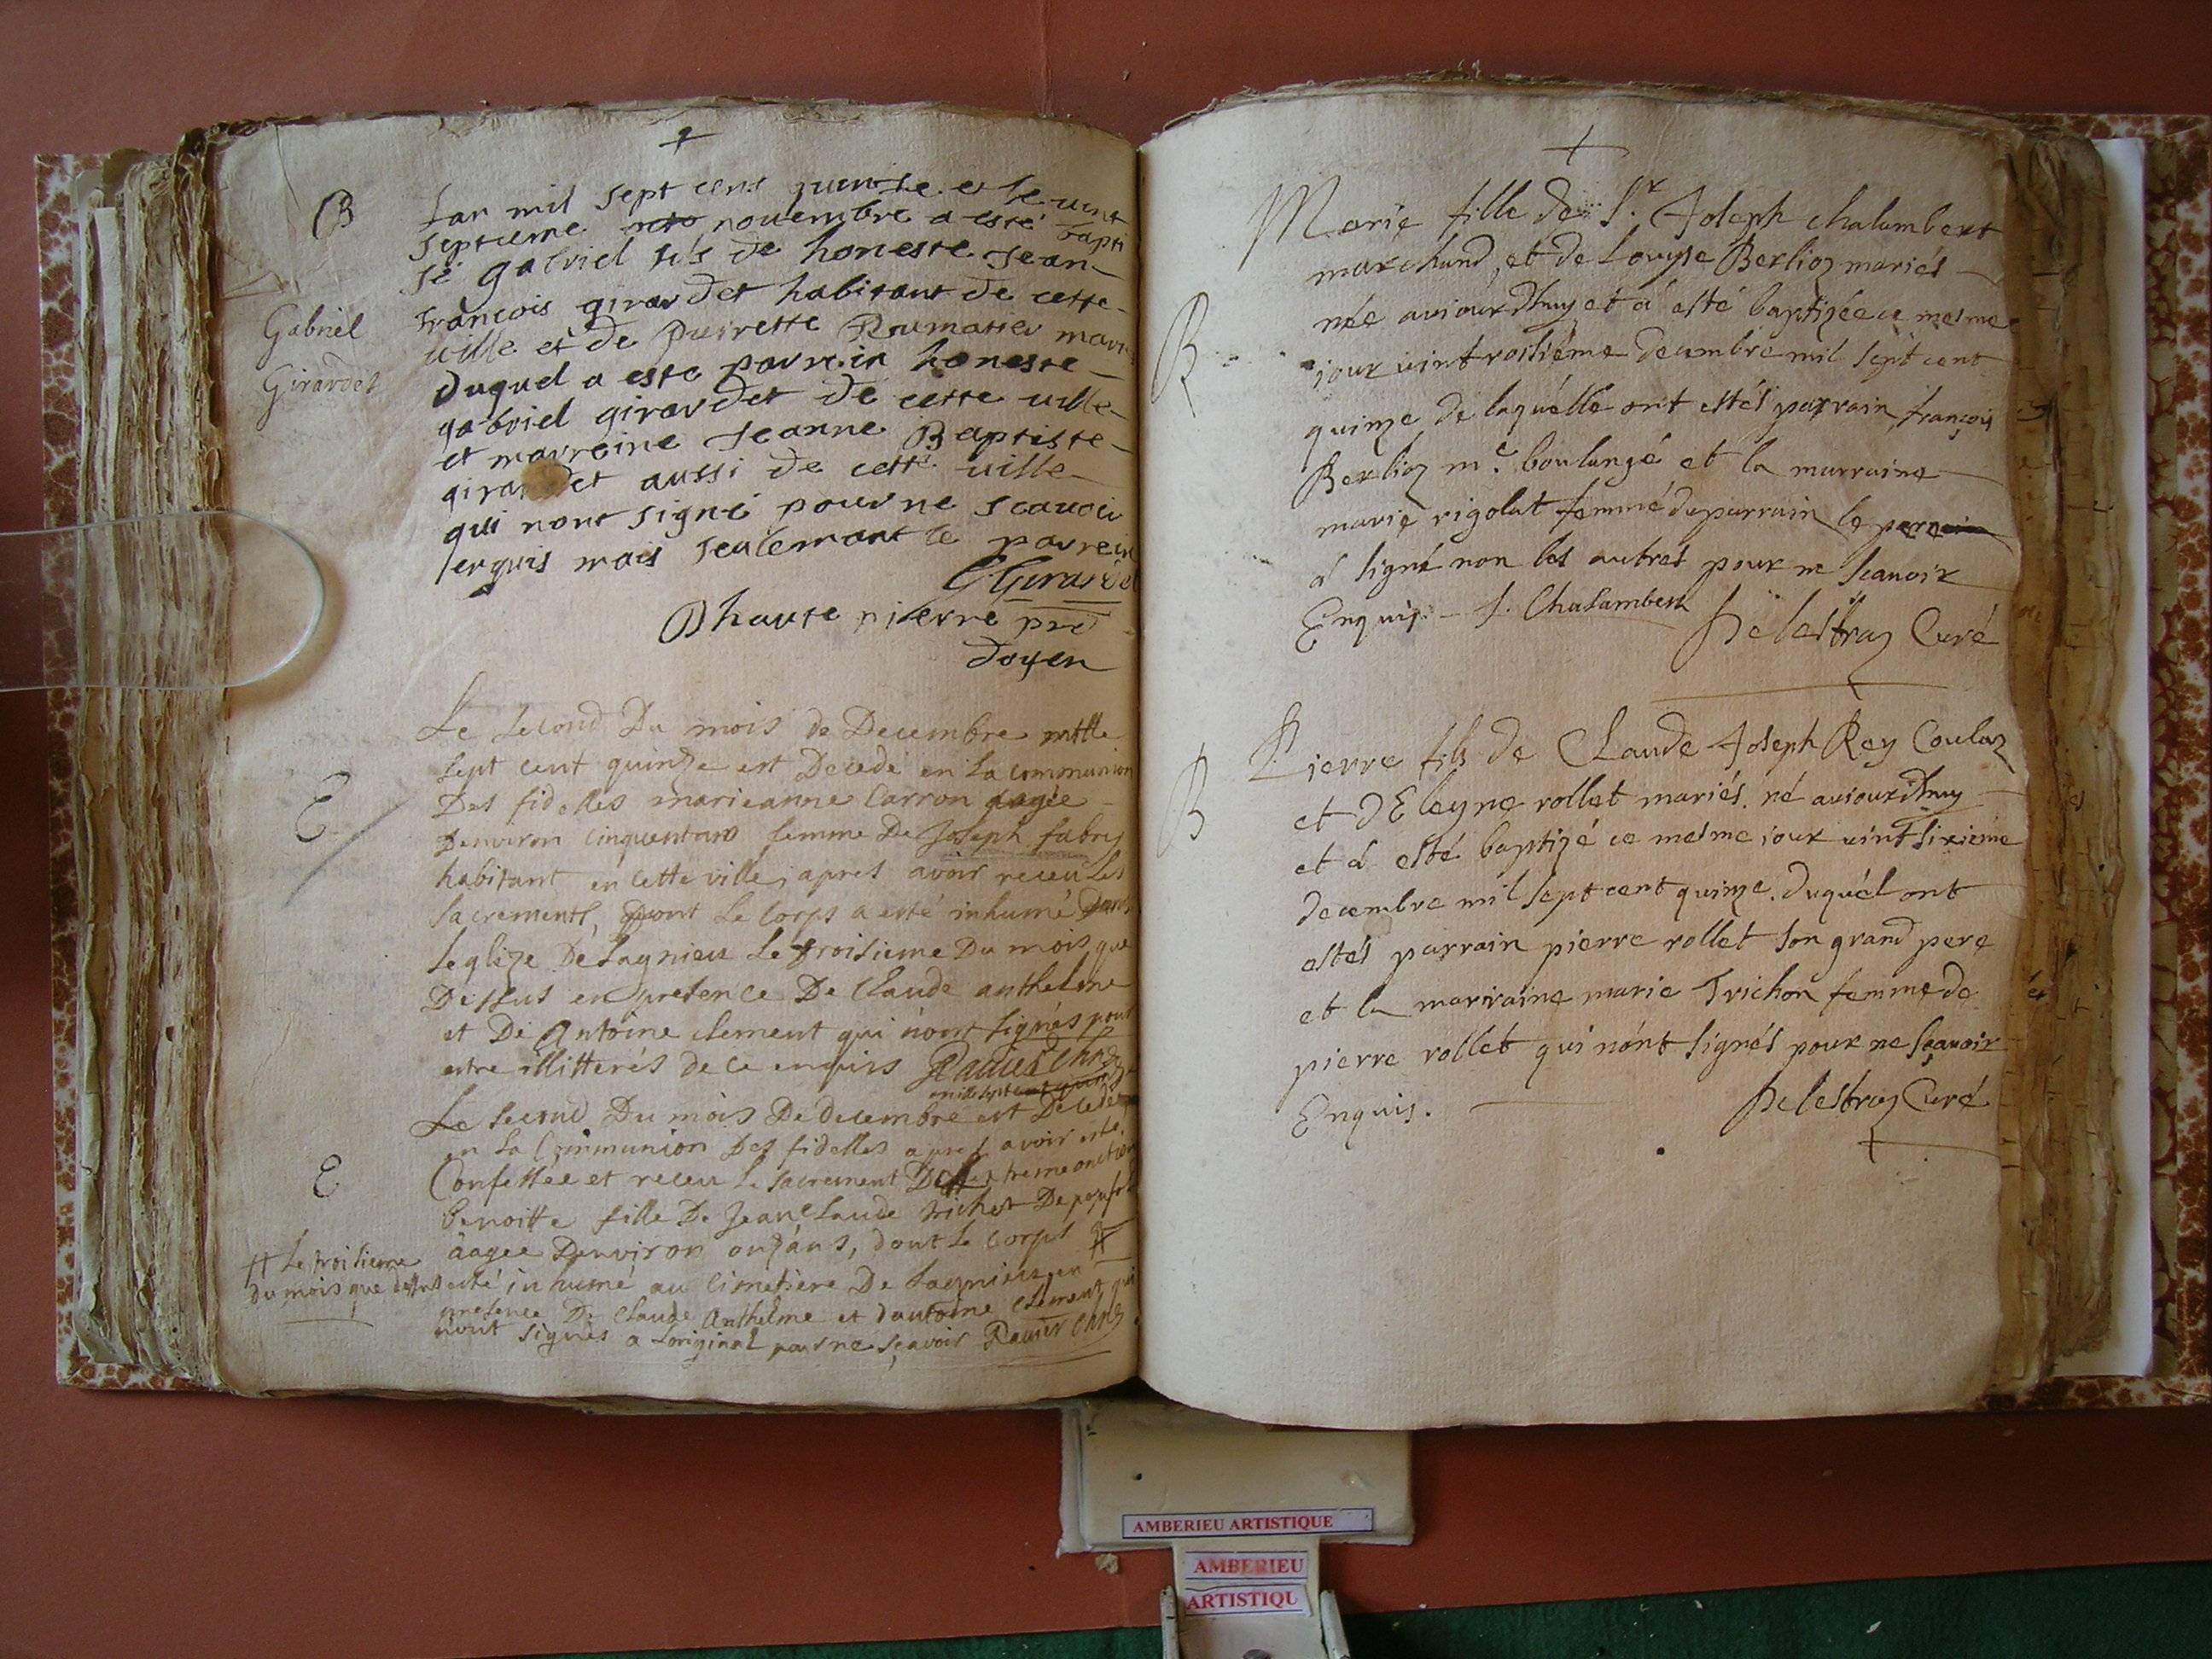 +
B
Lan mil sept cens quinse et le uint
septieme octo nouembre a esté bapti
sé gabriel fils de honeste Jean
Gabriel
Girardet
francois girardet habitant de cette
uille et de Puirette Dumatier mari
duquel a este parrein honeste
gabriel girardet de cette uille
et marreine Jeanne Baptiste
girardet aussi de cette uille
qui nont signé pour ne scauoir
enquis mais seulemant le parrein
G Girardet
Dhaute pierre pre
doyen
E
Le second Du mois de Decembre mille
sept cent quinze est Decedé en La communion
Des fidelles marieanne Carron aagée
Denviron cinquentans femme De Joseph fabry
habitant en cette ville, apres avoir receu Les
sacrements, Dont Le Corps a esté inhumé Dans
Leglize De Lagnieu Le troisieme Du mois que
Dessus en presence De Claude anthelme
et De Antoine clement qui nont signés pour
estre illitterés de ce enquis Ravier Chne
mille sept cent quinze
E
Le second Du mois De decembre est Decedée
en La Communion Des fidelles apres avoir esté
Confessée et receu Le sacrement De Lextreme onction
benoitte fille De Jean Claude trichet De
âagee Denviron onz'ans, dont Le Corps #
# Le troisieme
du mois que dessus
esté inhumé au Cimetière De Lagnieu en
presence De Claude Anthelme et dantoine Clement qui
nont signés a Loriginal pour ne sçavoir Ravier Chne
+
B
Marie fille de Sr. Joseph chalumbert
marchand, et de Louyse Berlioz mariés
née auiourdhuy et á esté baptizée ce mesme
iour uint troisiéme decembre mil sept cent
quinze de laquélle ont estés parrain françois
Berlioz me. boulangé et la marraine
marie rigolat femmé du parrain le parrain
á signé non les autres pour ne scauoir
Enquis. J. Chalambert Delestraz Curé
B
Pierre fils de Claude Joseph Rey Coulaz
et dEleyne rollet mariés. né auiourdhuy
et á esté baptizé ce mesme iour uint sixiéme
decembre mil sept cent quinze. duquél ont
estés parrain pierre rollet son grand pere
et la marraine marie Trichon femme de
pierre rollet qui nónt signés pour ne sçauoir
Enquis. Delestraz Curé
AMBERIEU ARTISTIQUE
AMBERIEU
ARTISTIQU